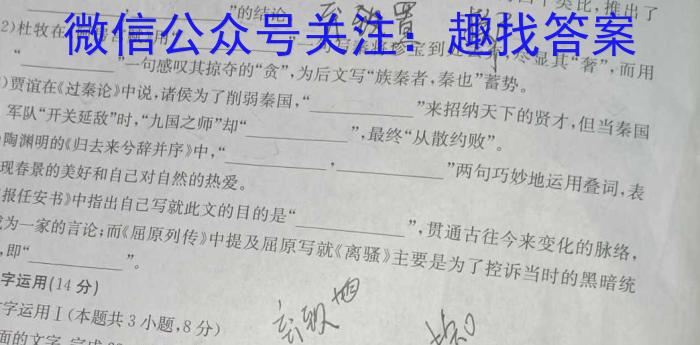 ____________”的结论
十个类比,推出了
2)杜牧在
“____________”一句感叹其掠夺的“贪”,为后文写“族秦者,秦也”蓄势。
微信公众号关注:趣找答案
到
尽显其“奢”,而用
)贾谊在《过秦论》中说,诸侯为了削弱秦国,“____________”来招纳天下的贤才,但当秦国
军队“开关延敌”时,“九国之师”却“____________”,最终“从散约败”。
)陶渊明的《归去来兮辞并序》中,“____________,____________”两句巧妙地运用叠词,表
现春景的美好和自己对自然的热爱。
报任安书》中指出自己写就此文的目的是“____________”,贯通古往今来变化的脉络,
成为一家的言论;而《屈原列传》中提及屈原写就《离骚》主要是为了控诉当时的黑暗统
,即“____________”。
字运用(14分)
字运用Ⅰ(本题共3小题,8分)
面的文字,完成